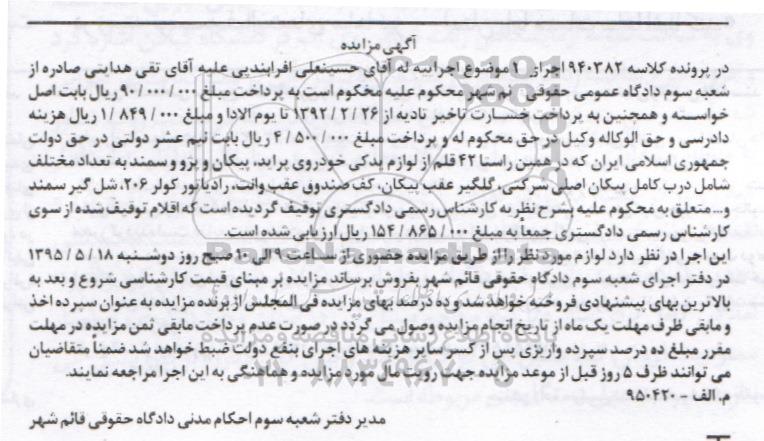 آگهی مزایده
در پرونده کلاسه ۹۴۰۳۸۲ اجرای ۳ موضوع اجراییه له آقای حسینعلی افرابندپی علیه آقای تقی هدایتی صادره از
شعبه سوم دادگاه عمومی حقوقی قائم شهر محکوم علیه محکوم است به پرداخت مبلغ ۹۰/۰۰۰/۰۰۰ ریال بابت اصل
خواسته و همچنین به پرداخت خسارت تاخیر تادیه از ۱۳۹۲/۲/۲۶ تا یوم الادا و مبلغ ۱/۸۴۹/۰۰۰ ریال هزینه
دادرسی و حق الوکاله وکیل در حق محکوم له و پرداخت مبلغ ۴/۵۰۰/۰۰۰ ریال بابت نیم عشر دولتی در حق دولت
جمهوری اسلامی ایران که در همین راستا ۴۲ قلم از لوازم یدکی خودروی پراید، پیکان و پژو و سمند به تعداد مختلف
شامل درب کامل پیکان اصلی شرکتی، گلگیر عقب پیکان، کف صندوق عقب وانت، رادیاتور کولر ۲۰۶، شل گیر سمند
و... متعلق به محکوم علیه بشرح نظر به کارشناس رسمی دادگستری توقیف گردیده است که اقلام توقیف شده از سوی
کارشناس رسمی دادگستری جمعاً به مبلغ ۱۵۴/۸۶۵/۰۰۰ ریال ارزیابی شده است.
این اجرا در نظر دارد لوازم مورد نظر را از طریق مزایده حضوری از ساعت ۹ الی ۱۰ صبح روز دوشنبه ۱۳۹۵/۵/۱۸
در دفتر اجرای شعبه سوم دادگاه حقوقی قائم شهر بفروش برساند مزایده بر مبنای قیمت کارشناسی شروع و بعد به
بالاترین بهای پیشنهادی فروخته خواهد شد و ده درصد بهای مزایده فی المجلس از برنده مزایده به عنوان سپرده اخذ
و مابقی ظرف مهلت یک ماه از تاریخ انجام مزایده وصول می گردد در صورت عدم پرداخت مابقی ثمن مزایده در مهلت
مقرر مبلغ ده درصد سپرده واریزی پس از کسر سایر هزینه های اجرای بنفع دولت ضبط خواهد شد ضمناً متقاضیان
می توانند ظرف ۵ روز قبل از موعد مزایده جهت رویت مال مورد مزایده و هماهنگی به این اجرا مراجعه نمایند.
م.الف - ۹۵۰۴۲۰
مدیر دفتر شعبه سوم احکام مدنی دادگاه حقوقی قائم شهر
ParsNamadData
پایگاه اطلاع رسانی مناقصه و مزایده